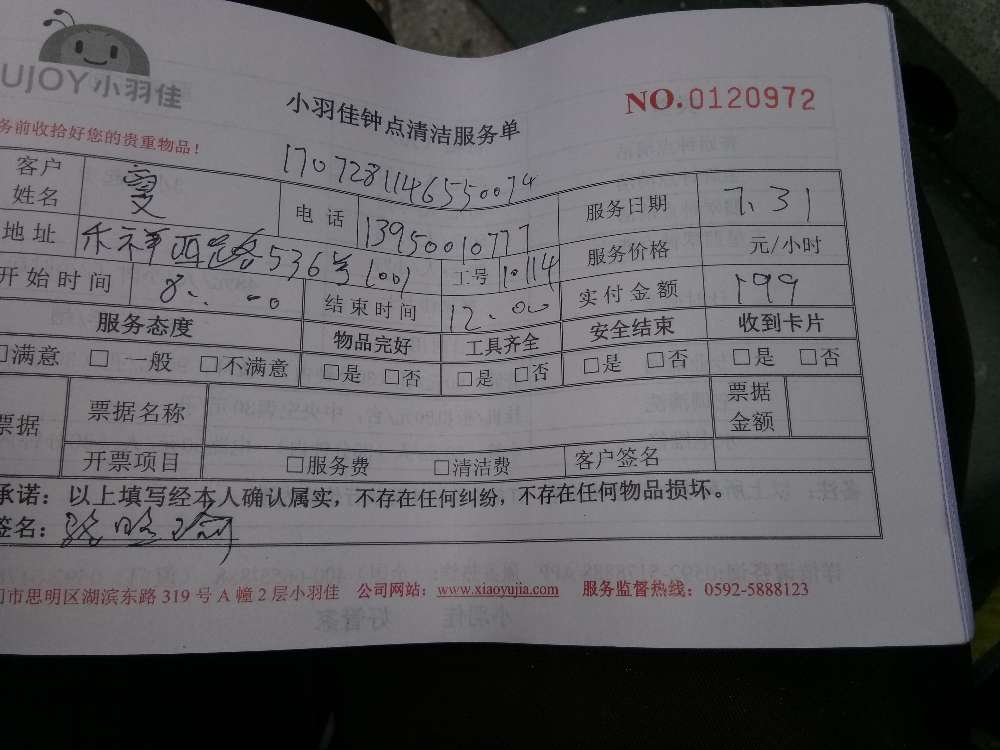 UJOY小羽佳
小羽佳钟点清洁服务单
NO.0120972
务前收拾好您的贵重物品！
1707281146550074
客户姓名 夏 电话 13950010777 服务日期 7.31
地址 禾祥西路536号1001 工号 10114 服务价格 元/小时
开始时间 8:00 结束时间 12:00 实付金额 199
服务态度 物品完好 工具齐全 安全结束 收到卡片
□满意 □一般 □不满意 □是 □否 □是 □否 □是 □否 □是 □否
票据 票据名称 票据金额
开票项目 □服务费 □清洁费 客户签名
承诺：以上填写经本人确认属实，不存在任何纠纷，不存在任何物品损坏。
签名：
门市思明区湖滨东路 319 号 A 幢 2 层小羽佳 公司网站：www.xiaoyujia.com 服务监督热线：0592-5888123